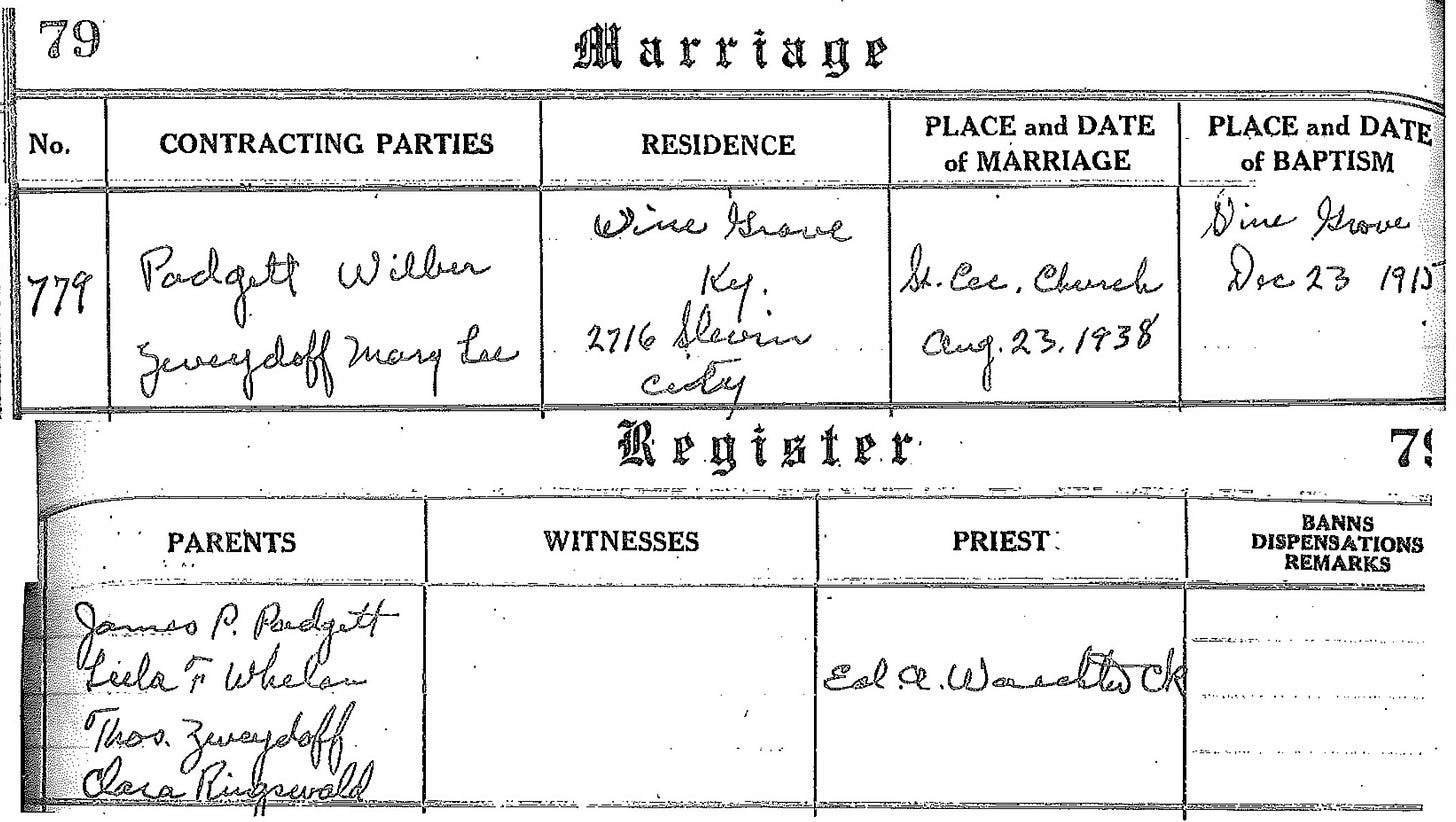 79
Marriage
No.
CONTRACTING PARTIES
RESIDENCE
PLACE and DATE
of MARRIAGE
PLACE and DATE
of BAPTISM
779
Padgett Wilbur
Zweydoff Mary Lee
Vine Grove
Ky.
2716 Slevin
City
St. Cec. Church
Aug. 23. 1938
Vine Grove
Dec 23 1915
Register
79
PARENTS
WITNESSES
PRIEST
BANNS
DISPENSATIONS
REMARKS
James P. Padgett
Leela F Whelan
Thos. Zweydoff
Clara Ringswald
Ed. A.